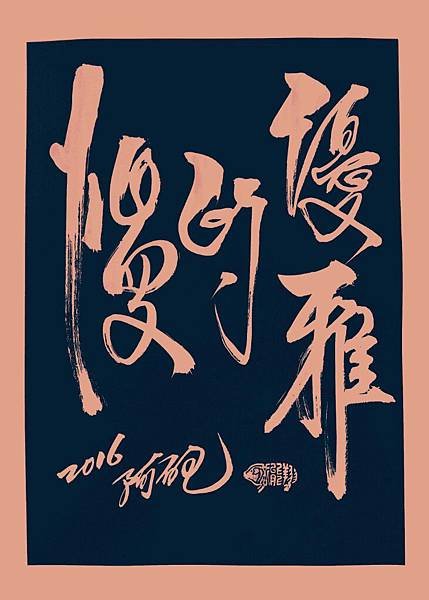 優雅
的
慢
2016 阿砲